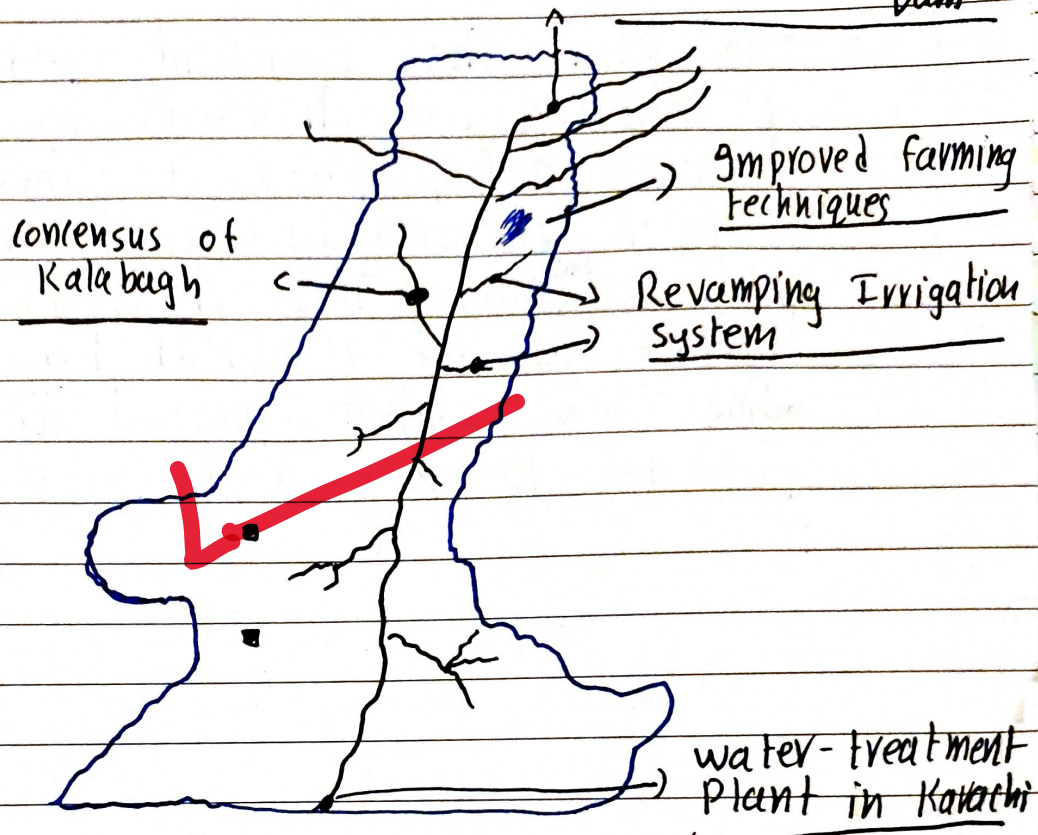 Dam
Improved farming
techniques
concensus of
Kalabagh
Revamping Irrigation
system
water-treatment
Plant in Karachi